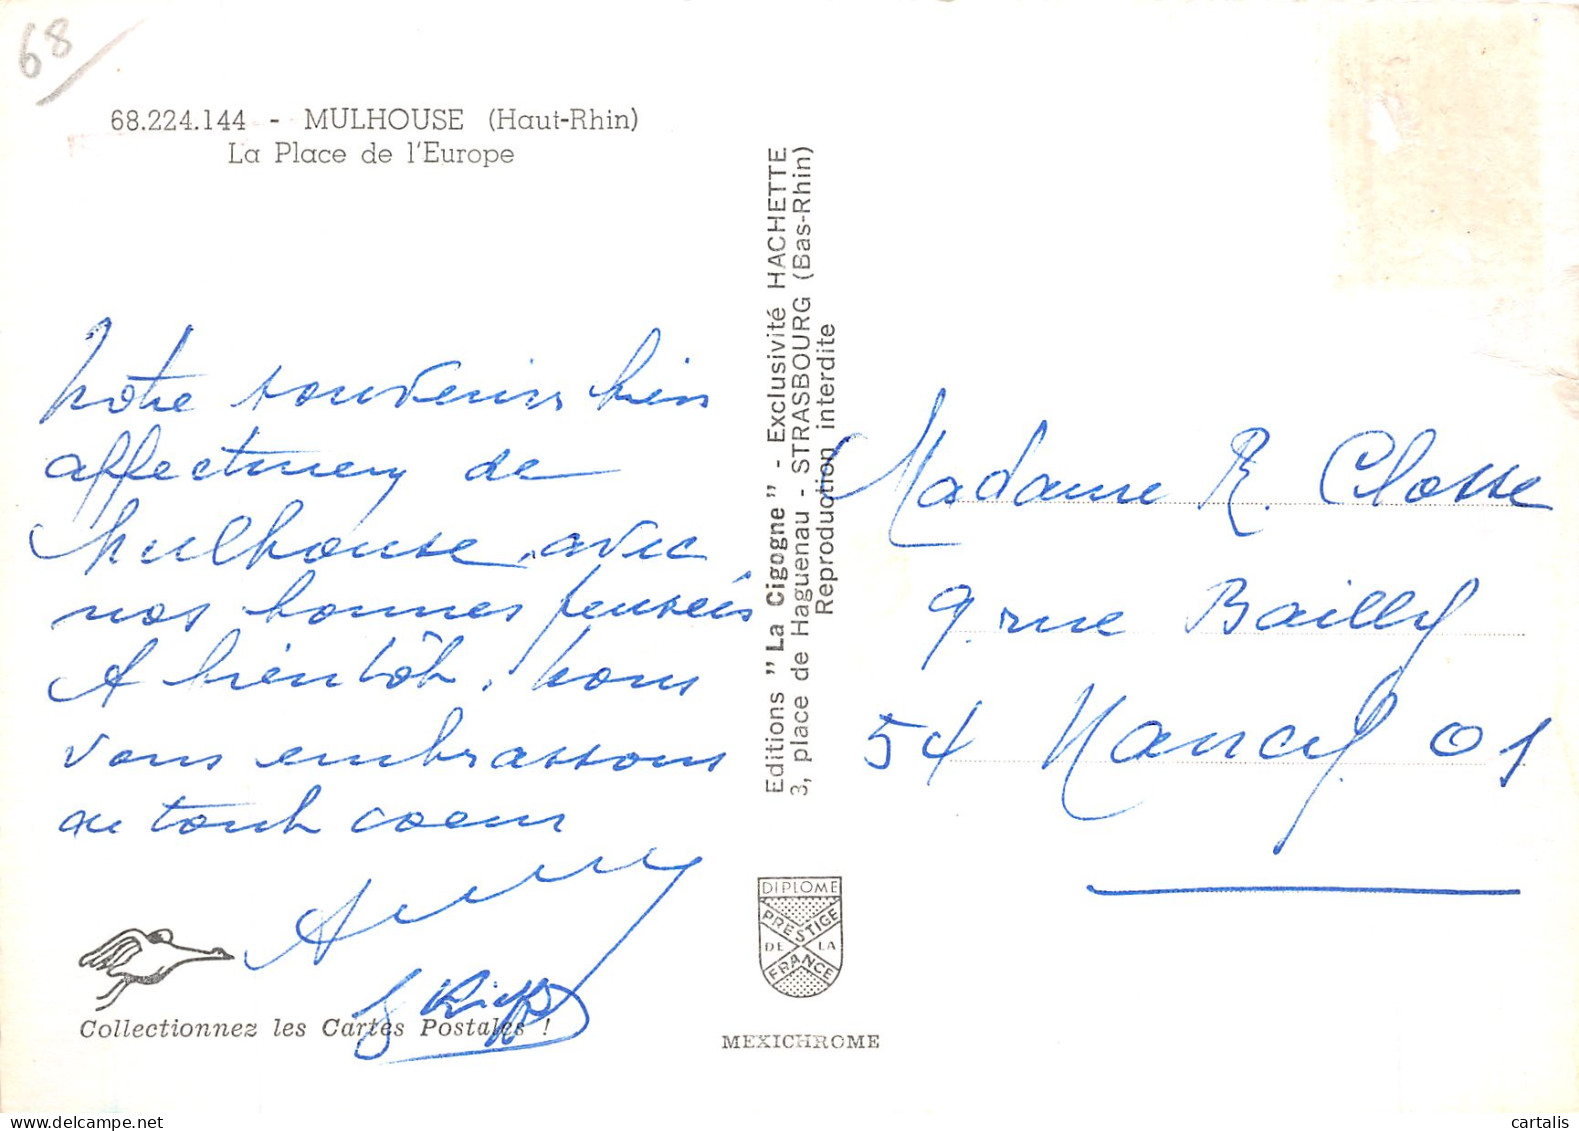 68
68.224.144 - MULHOUSE (Haut-Rhin)
La Place de l'Europe
Notre souvenir bien
affectueux de
Mulhouse, avec
nos bonnes pensées
A bientôt. Nous
vous embrassons
de tout coeur
Collectionnez les Cartes Postales !
Editions " La Cigogne " - Exclusivité HACHETTE
3, place de Haguenau - STRASBOURG (Bas-Rhin)
Reproduction interdite
DIPLOME
PRESTIGE
DE LA
FRANCE
MEXICHROME
Madame R. Closse
9. rue Bailly
54 Nancy 01
cartalis
delcampe.net